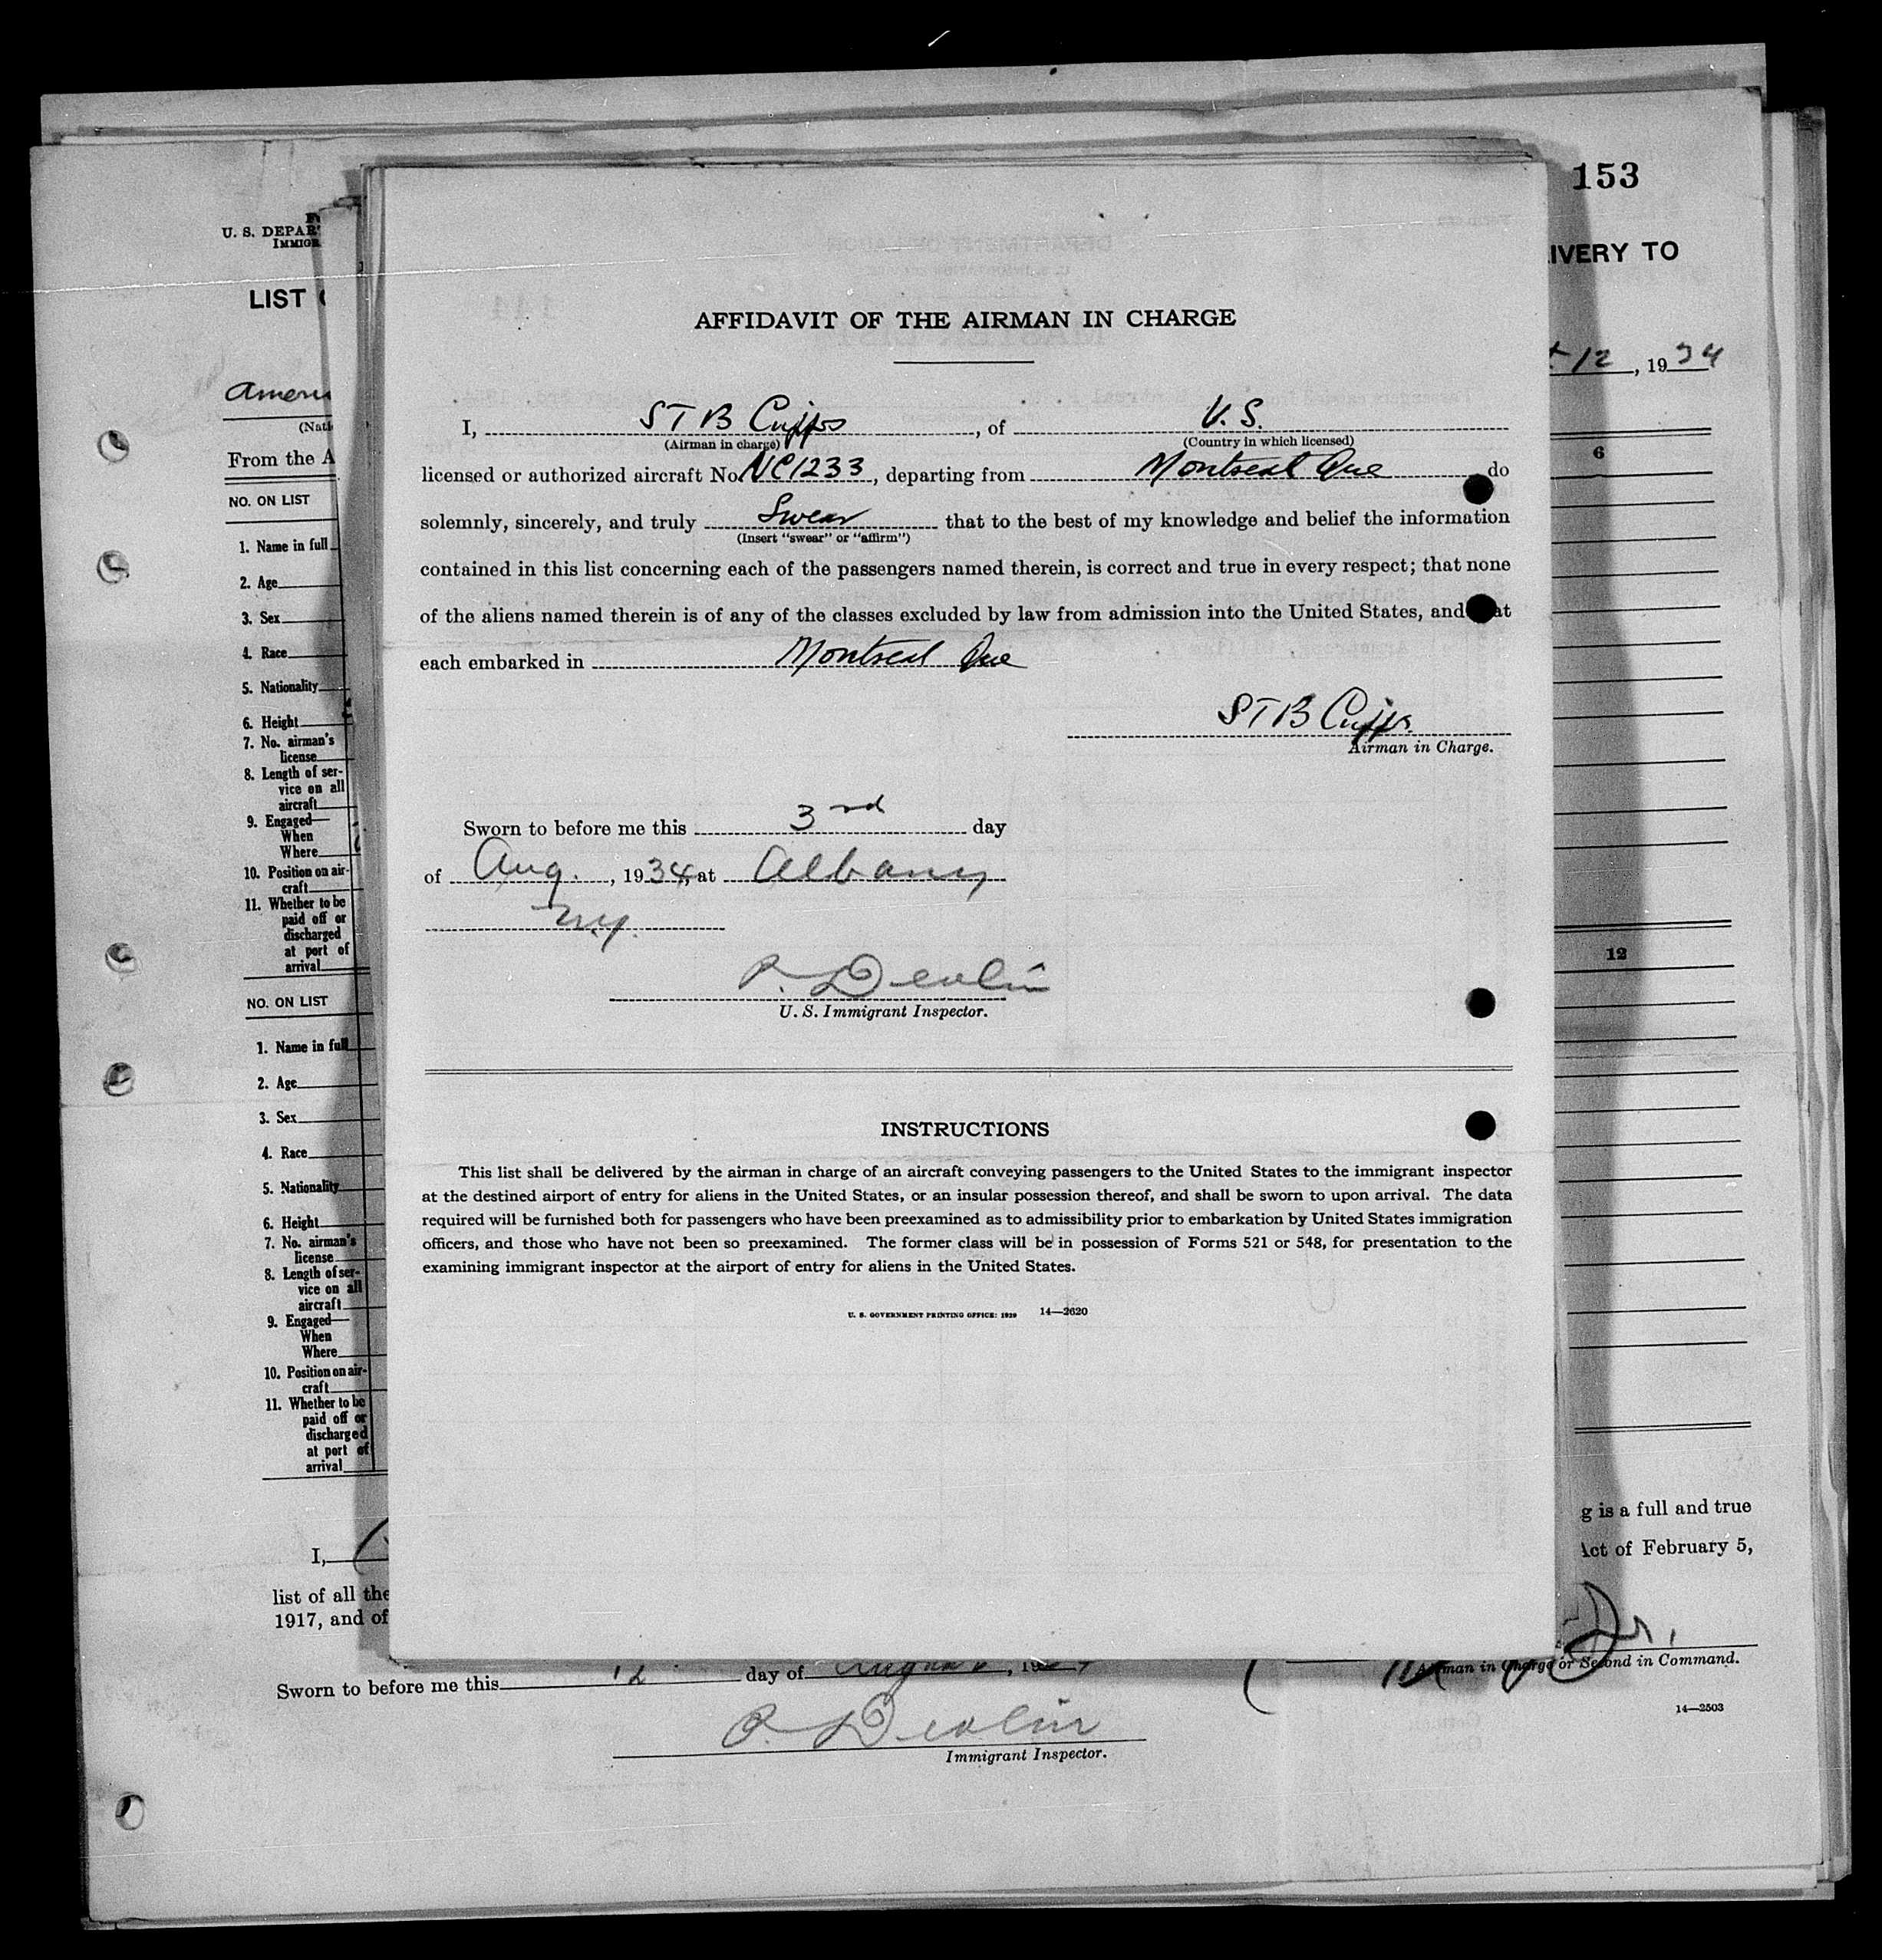 153
U. S. DEPAR
IMMIGR
IVERY TO
LIST
12, 1934
AFFIDAVIT OF THE AIRMAN IN CHARGE
I, S T B Cripps, of U.S.
(Airman in charge) (Country in which licensed)
licensed or authorized aircraft No. NC1233, departing from Montreal Que do
solemnly, sincerely, and truly Swear that to the best of my knowledge and belief the information
(Insert "swear" or "affirm")
contained in this list concerning each of the passengers named therein, is correct and true in every respect; that none
of the aliens named therein is of any of the classes excluded by law from admission into the United States, and at
each embarked in Montreal Que
S T B Cripps.
Airman in Charge.
Sworn to before me this 3rd day
of Aug., 1934, at Albany
N.Y.
P. Devlin
U. S. Immigrant Inspector.
INSTRUCTIONS
This list shall be delivered by the airman in charge of an aircraft conveying passengers to the United States to the immigrant inspector
at the destined airport of entry for aliens in the United States, or an insular possession thereof, and shall be sworn to upon arrival. The data
required will be furnished both for passengers who have been preexamined as to admissibility prior to embarkation by United States immigration
officers, and those who have not been so preexamined. The former class will be in possession of Forms 521 or 548, for presentation to the
examining immigrant inspector at the airport of entry for aliens in the United States.
U. S. GOVERNMENT PRINTING OFFICE: 1929 14—2620
Ameri
(Nati
From the A
NO. ON LIST
6
1. Name in full
2. Age
3. Sex
4. Race
5. Nationality
6. Height
7. No. airman's
license
8. Length of ser-
vice on all
aircraft
9. Engaged—
When
Where
10. Position on air-
craft
11. Whether to be
paid off or
discharged
at port of
arrival
NO. ON LIST
12
1. Name in full
2. Age
3. Sex
4. Race
5. Nationality
6. Height
7. No. airman's
license
8. Length of ser-
vice on all
aircraft
9. Engaged—
When
Where
10. Position on air-
craft
11. Whether to be
paid off or
discharged
at port of
arrival
I,
g is a full and true
list of all the
Act of February 5,
1917, and of
Jr.
Airman in Charge or Second in Command.
Sworn to before me this 12 day of August, 19
14—2503
P. Devlin
Immigrant Inspector.